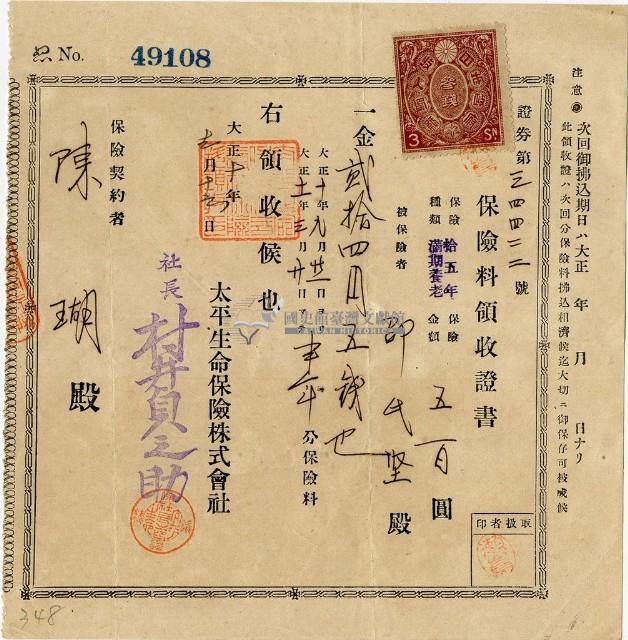 No. 49108
注意 次回御拂込期日ハ大正 年 月 日ナリ
此領收證ハ次回分保險料拂込相濟候迄大切ニ御保存可被成候
3 SN
參錢
證券第三四四二二號
保險料領收證書
保險種類 拾五年滿期養老
保險金額 五百圓
被保險者 邵氏堅 殿
一金貳拾四円五錢也
大正十年
大正十一年
分保險料
右領收候也
大正十年
太平生命保險株式會社
社長 村井貞之助
保險契約者
陳 瑚 殿
取扱者印
國史館臺灣文獻館
TAIWAN HISTORICA
348